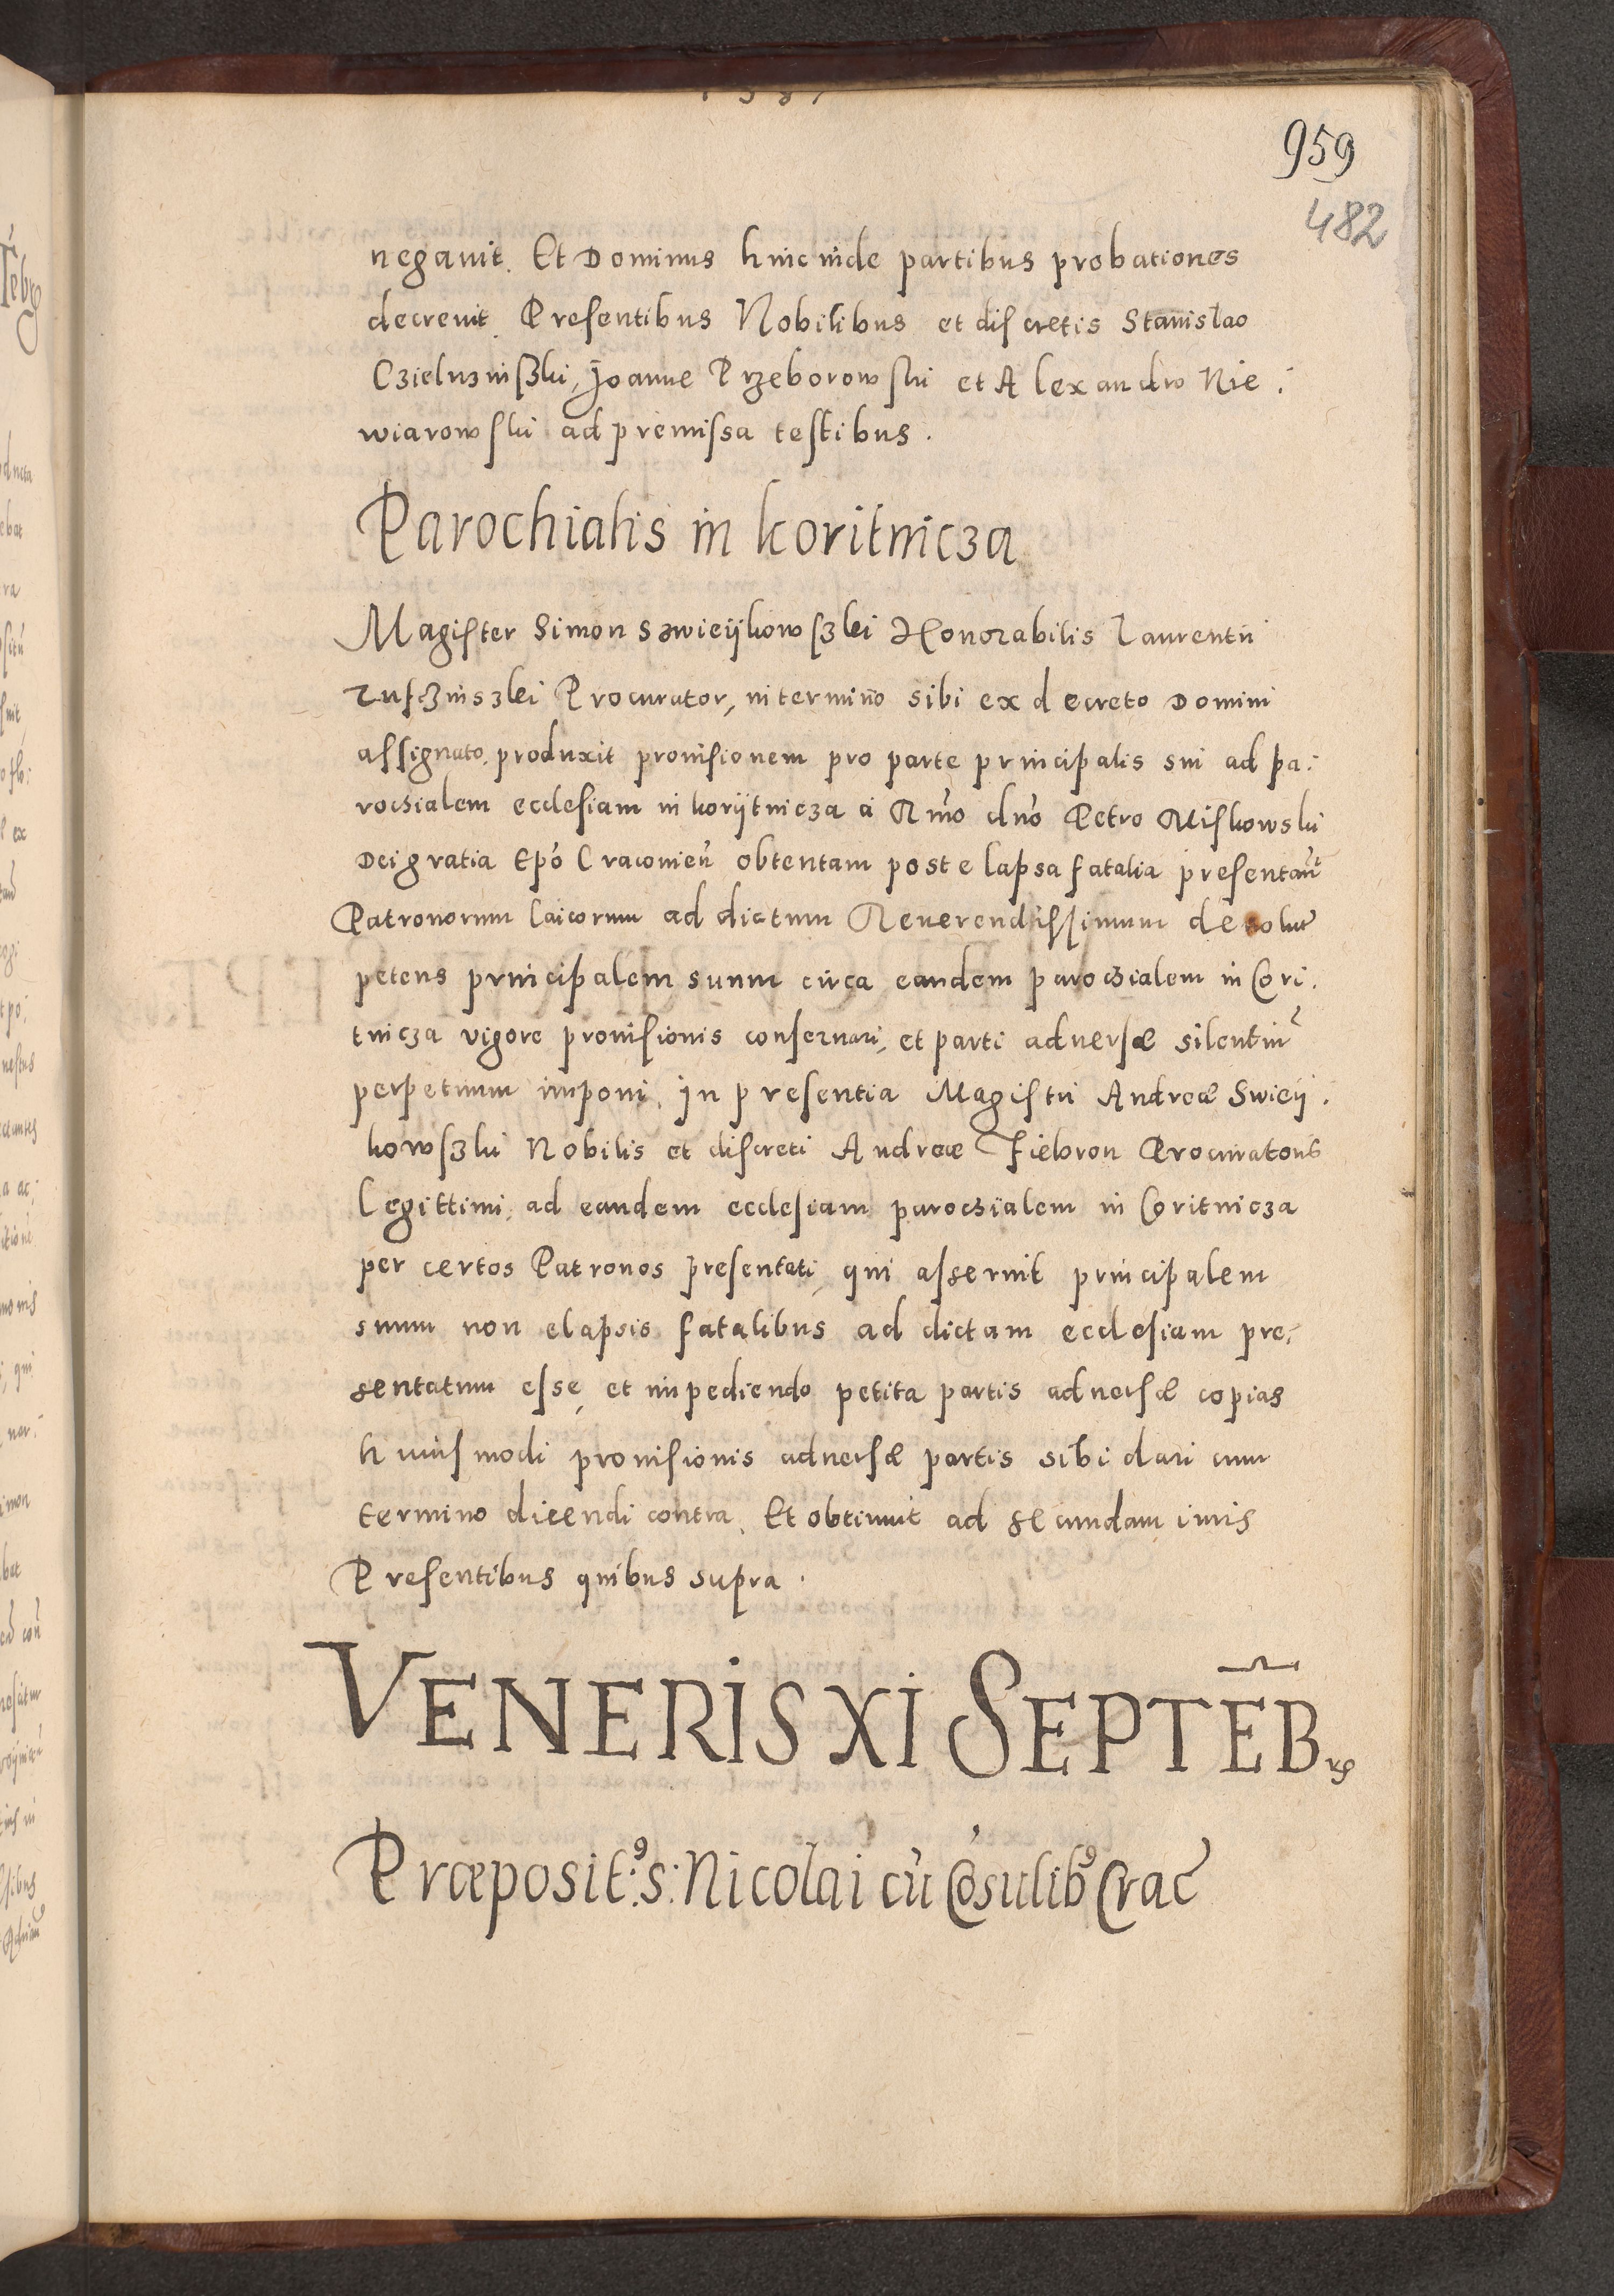 959
482
negauit. Et Dominus hincinde partibus probationes
decreuit. Presentibus Nobilibus et discretis Stanislao
Czieluzinszki, Joanne Przeborowski et Alexandro Nie:
wiarowski ad premissa testibus.
Parochialis in Koritnicza
Magister Simon Swieijkowszkj Honorabilis Laurentii
Procurator, in termino sibi ex decreto Domini
assignato, produxit prouisionem pro parte principalis sui ad pa:
rochialem ecclesiam in Korijtnicza a Rmo dno Petro Miskowski
Dei gratia Epo Cracouien obtentam post elapsa fatalia presentan
Patronorum laicorum ad dictum Reuerendissimum deuolut
petens principalem suum circa eandem parochialem in Cori:
tnicza vigore prouisionis conseruari, et parti aduersæ silentiu
perpetuum imponi. In presentia Magistri Andreæ Swieij:
kowszki Nobilis et discreti Andreæ Fiebron Procuratoris
Legittimi, ad eandem ecclesiam parochialem in Coritnicza
per certos Patronos presentati, qui asseruit principalem
suum non elapsis fatalibus ad dictam ecclesiam pre:
sentatum esse, et impediendo petita partis aduersæ copias
huiusmodi prouisionis aduersæ partis sibi dari cum
termino dicendi contra. Et obtinuit ad secundam iuris
Presentibus quibus supra.
VENERIS XI SEPTEB̄rs
Præposit:⁹ S: Nicolai cu Cosulib⁹ Crac